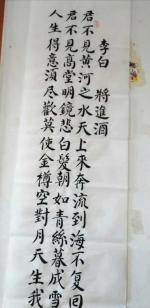 李白 將進酒
君不見黃河之水天上來奔流到海不復回
君不見高堂明鏡悲白髮朝如青絲暮成雪
人生得意須盡歡莫使金樽空對月天生我